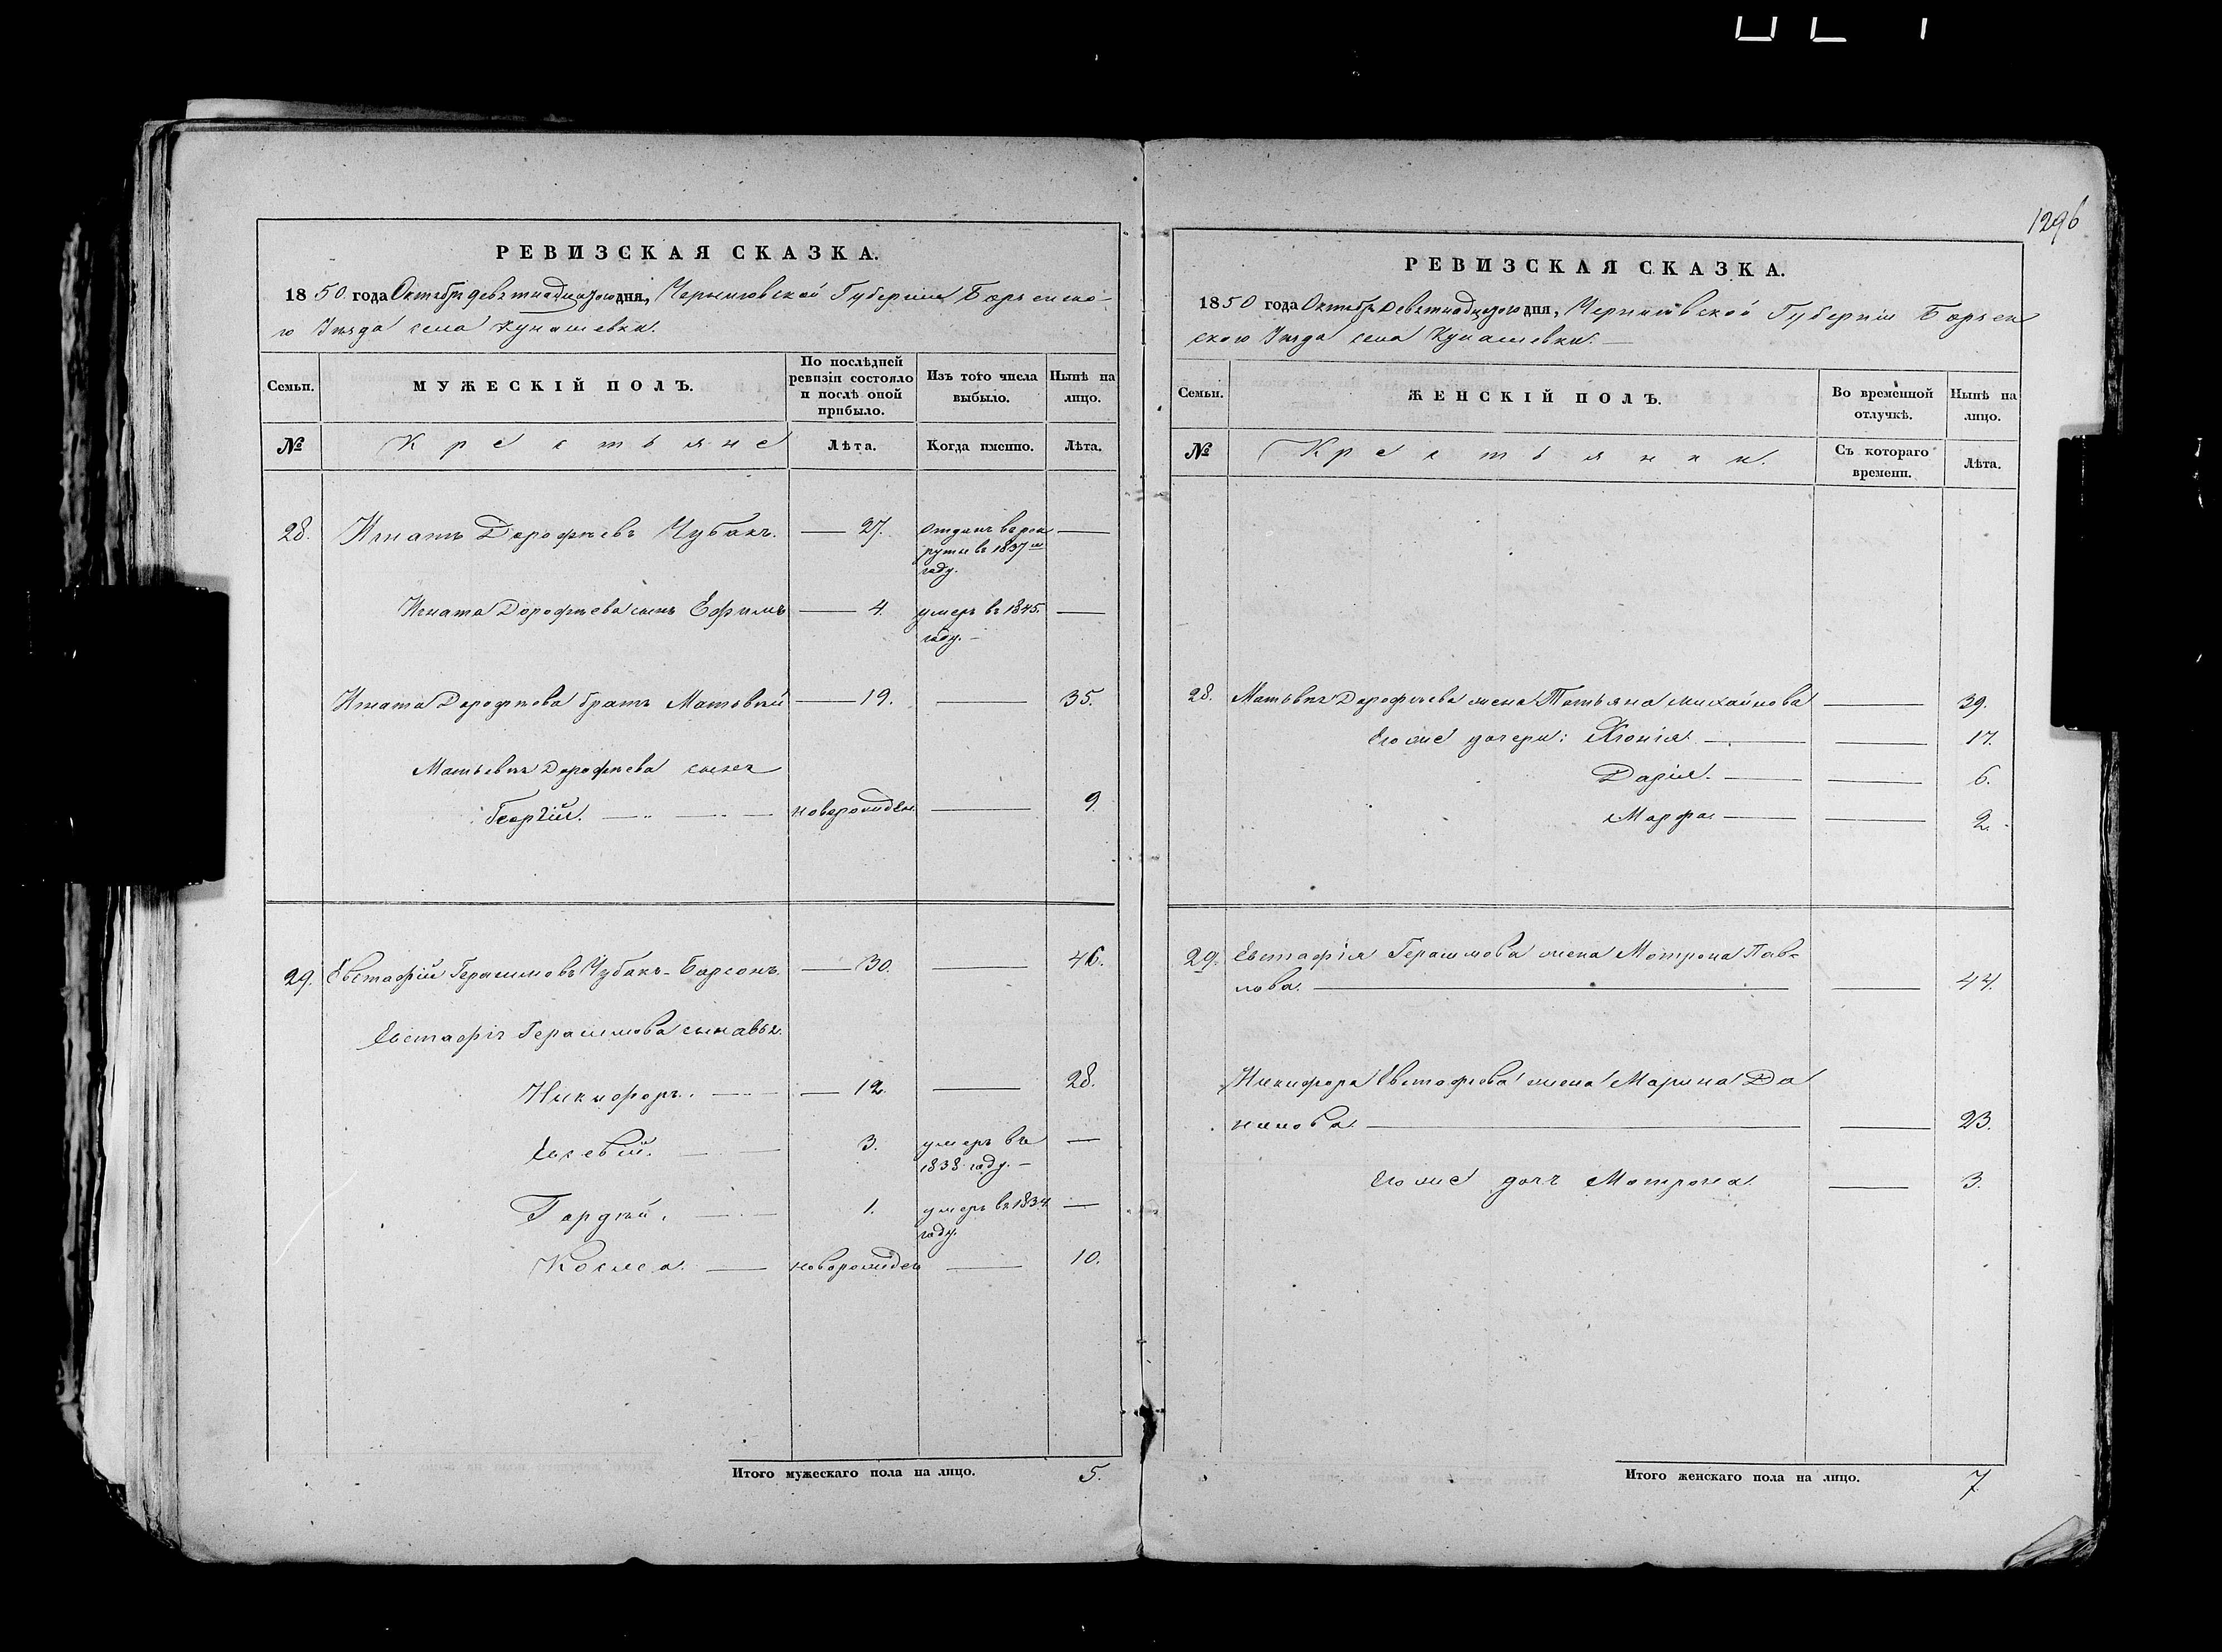 1296
РЕВИЗСКАЯ СКАЗКА.
1850 года Октября девятнадцатого дня, Черниговской Губернии Борзенско-
го Уезда села Кунашевки.
Семьи. МУЖЕСКІЙ ПОЛЪ. По послѣдней ревизіи состояло и послѣ оной прибыло. Изъ того числа выбыло. Нынѣ на лицо.
№ Крестьяне Лѣта. Когда именно. Лѣта.
28. Игнатъ Дорофѣевъ Чубакъ. — 27. отданъ въ рек
руты въ 1837 м
году.
Игната Дорофѣева сынъ Ефимъ — 4. умеръ въ 1845.
году. —
Игната Дорофѣева братъ Матвѣй — 19. — 35.
Матвѣя Дорофѣева сынъ
Георгій. — новорожден. — 9
29. Евстафій Герасимовъ Чубакъ-Борсокъ. — 30. — 46.
Евстафія Герасимова сыновья.
Никифоръ. — 12. — 28.
3. умеръ въ —
1838 году. —
Гордѣй. — 1. умеръ въ 1834 —
году.
Косма. — новорожден — 10.
Итого мужескаго пола на лицо. 5.
РЕВИЗСКАЯ СКАЗКА.
1850 года Октября девятнадцатого дня, Черниговской Губерніи Борзен
ского Уезда села Кунашевки. —
Семьи. ЖЕНСКІЙ ПОЛЪ. Во временной отлучкѣ. Нынѣ на лицо.
№ Крестьянки. Съ котораго времени. Лѣта.
28. Матвѣя Дорофѣева жена Татьяна Михайлова — 39.
Его же дочери: — 17.
Дарія. — 6.
Марфа — 2.
29. Евстафія Герасимова жена Мотрона Пав-
лова. — 44.
Никифора Евстафіева жена Марина Да
нилова. — 23.
Его же дочь Мотрона. — 3.
Итого женскаго пола на лицо. 7